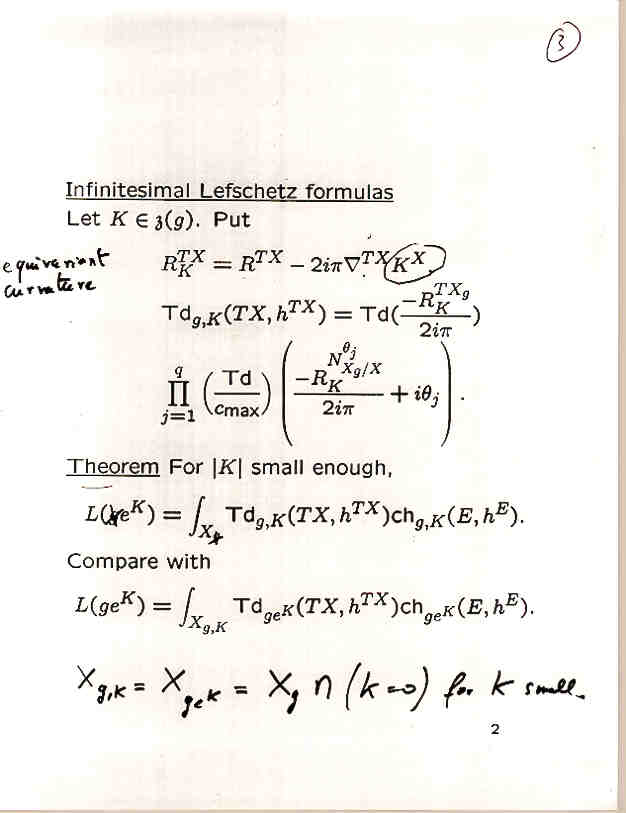 3
Infinitesimal Lefschetz formulas
Let K ∈ 𝔷(g). Put
equivariant
curvature
R_K^{TX} = R^{TX} − 2iπ∇_·^{TX} K^X.
Td_{g,K}(TX, h^{TX}) = Td(−R_K^{TX_g} / 2iπ)
∏_{j=1}^{q} (Td / c_max) (−R_K^{N_{X_g/X}^{θ_j}} / 2iπ + iθ_j).
Theorem For |K| small enough,
L(ge^K) = ∫_{X_g} Td_{g,K}(TX, h^{TX}) ch_{g,K}(E, h^E).
Compare with
L(ge^K) = ∫_{X_{g,K}} Td_{ge^K}(TX, h^{TX}) ch_{ge^K}(E, h^E).
X_{g,K} = X_{ge^K} = X_g ∩ (K=0) for K small.
2